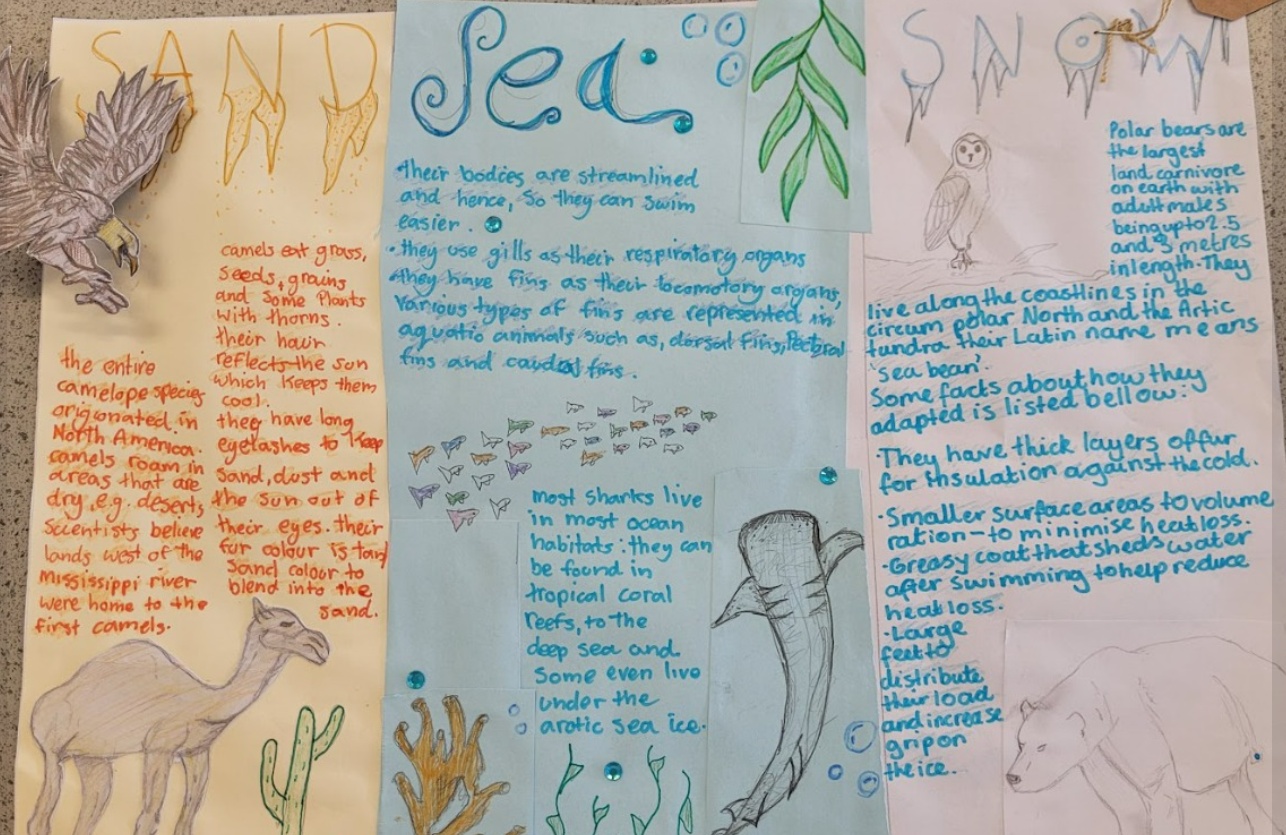 SAND
camels eat grass,
seeds, grains
and some Plants
with thorns.
their hair
reflects the sun
which keeps them
cool.
they have long
eyelashes to keep
sand, dust and
the sun out of
their eyes. their
fur colour is tan/
sand colour to
blend into the
sand.
the entire
camelope species
origionated in
North America.
camels roam in
areas that are
dry, e.g. deserts,
Scientists believe
lands west of the
Mississippi river
were home to the
first camels.
Sea
·their bodies are streamlined
and hence, so they can swim
easier.
·they use gills as their respiratory organs
·they have fins as their locomotory organs,
various types of fins are represented in
aquatic animals such as, dorsal fins, Pectoral
fins and caudal fins.
most sharks live
in most ocean
habitats: they can
be found in
tropical coral
reefs, to the
deep sea and.
some even live
under the
arctic sea ice.
SNOW
Polar bears are
the largest
land carnivore
on earth with
adult males
being up to 2.5
and 3 metres
in length. They
live along the coastlines in the
circum polar North and the Artic
tundra their Latin name means
'sea bean'.
Some facts about how they
adapted is listed bellow:
·They have thick layers of fur
for insulation against the cold.
·Smaller surface areas to volume
ration-to minimise heat loss.
·Greasy coat that sheds water
after swimming to help reduce
heat loss.
·Large
feet to
distribute
their load
and increase
grip on
the ice.